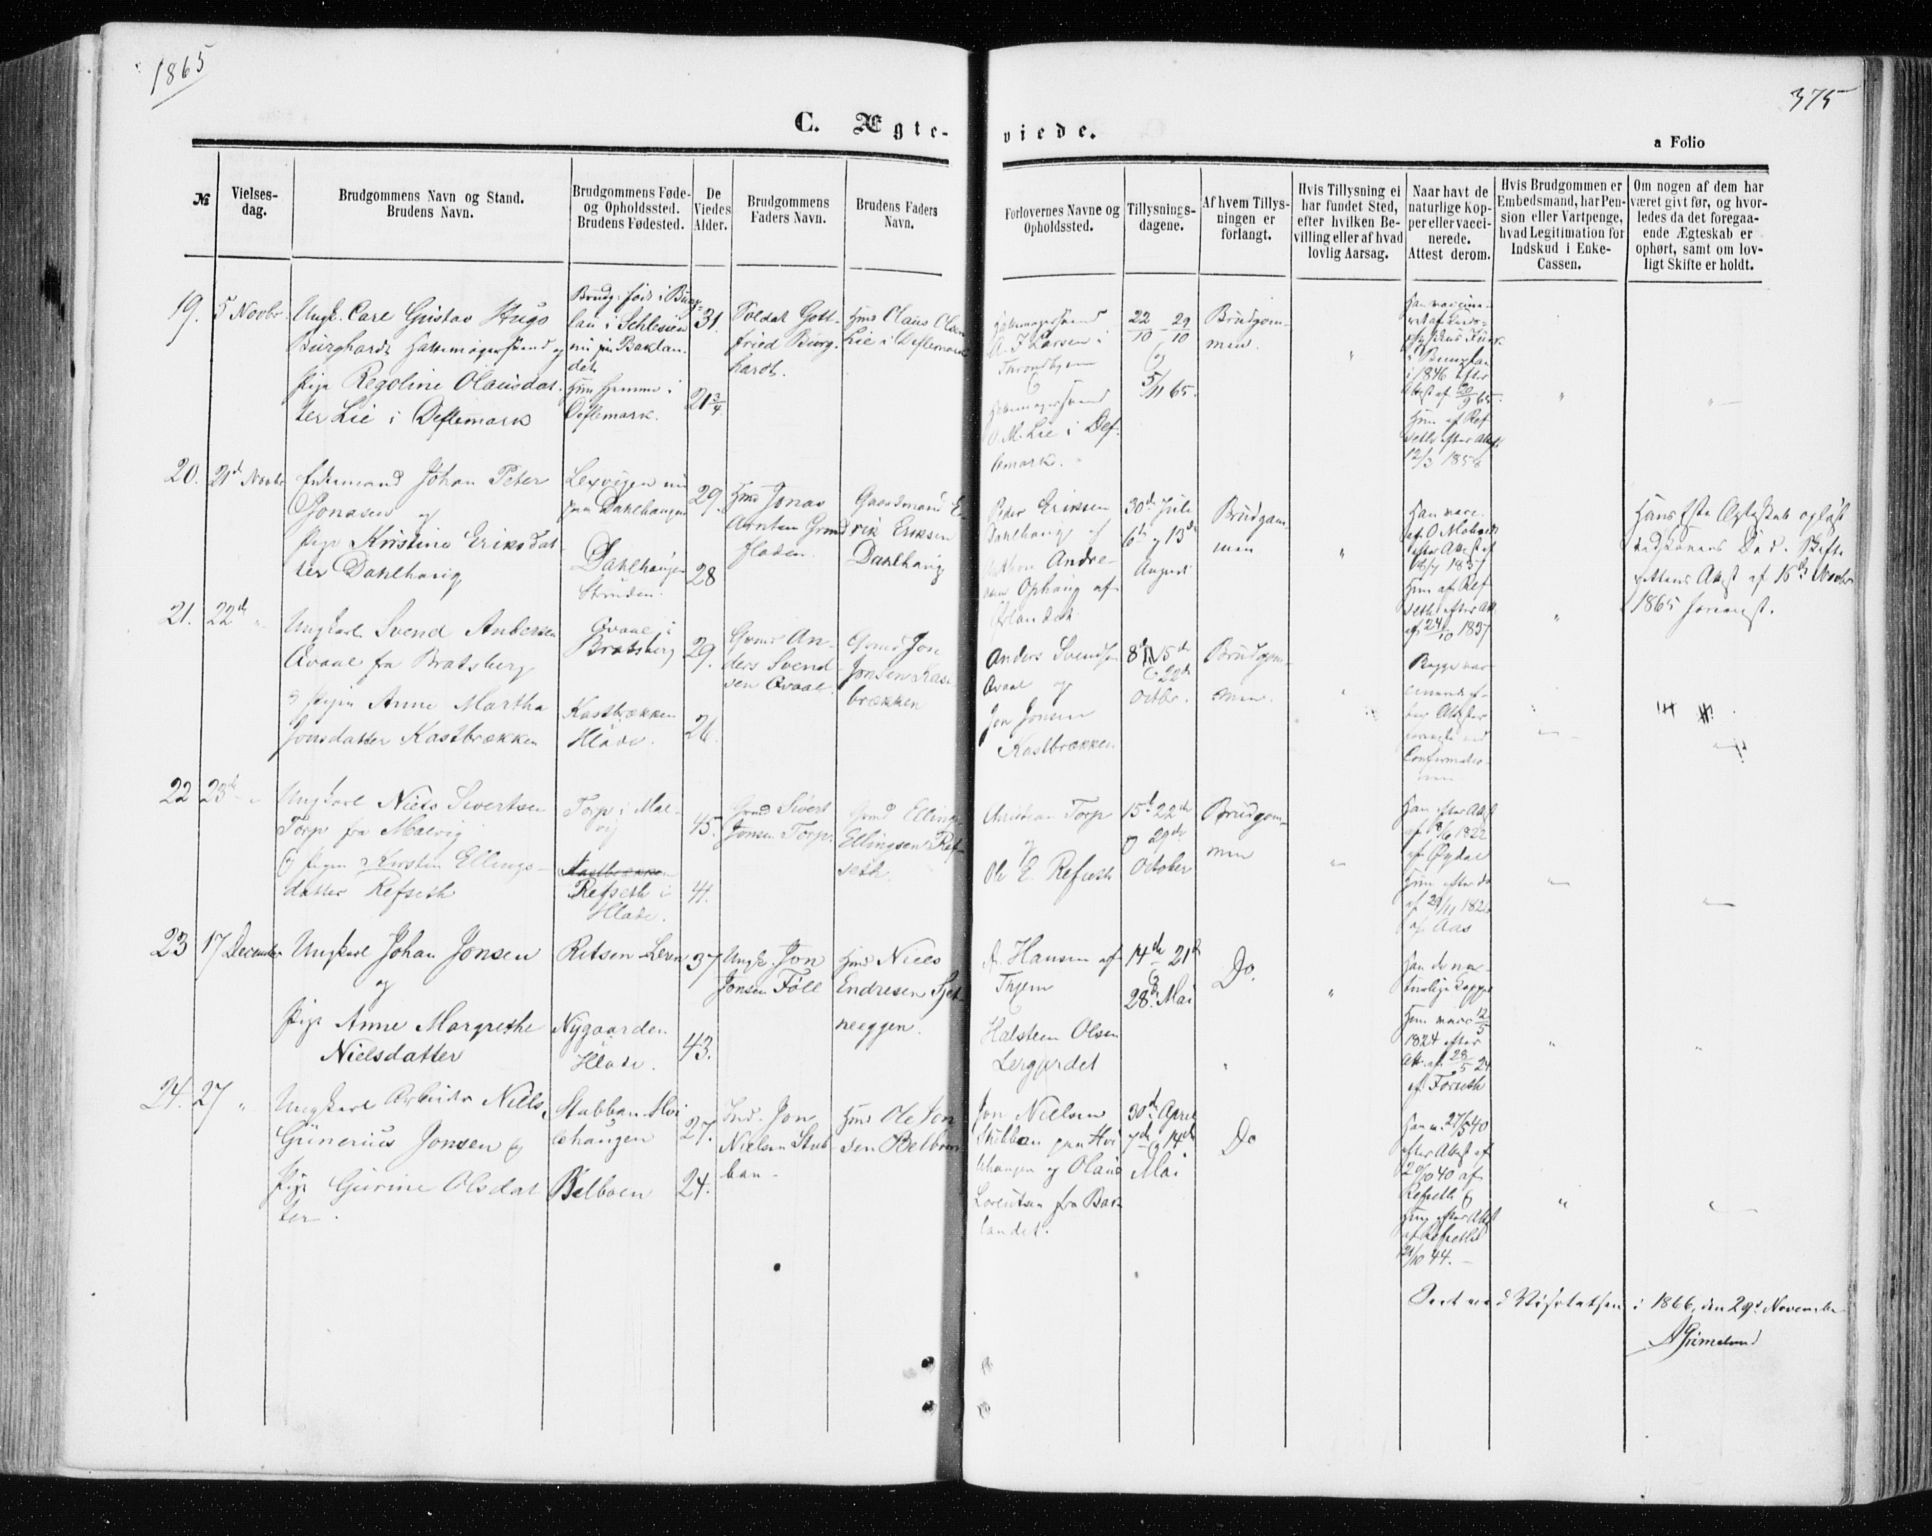 1865
375
C. Ægte-
viede.
a Folio
№
Vielses-
dag.
Brudgommens Navn og Stand.
Brudens Navn.
Brudgommens Føde-
og Opholdssted.
Brudens Fødested.
De
Viedes
Alder.
Brudgommens
Faders Navn.
Brudens Faders
Navn.
Forlovernes Navne og
Opholdssted.
Tillysnings-
dagene.
Af hvem Tillys-
ningen er
forlangt.
Hvis Tillysning ei
har fundet Sted,
efter hvilken Be-
villing eller af hvad
lovlig Aarsag.
Naar havt de
naturlige Kop-
per eller vacci-
nerede.
Attest derom.
Hvis Brudgommen er
Embedsmand, har Pen-
sion eller Vartpenge,
hvad Legitimation for
Indskud i Enke-
Cassen.
Om nogen af dem har
været givt før, og hvor-
ledes da det foregaa-
ende Ægteskab er
ophørt, samt om lov-
ligt Skifte er holdt.
19.
5 Novbr.
Ungk. Carl Gustav Hugo
Burghardt Hattemagersvend og
Pige Regoline Olausdat-
ter Lie i Deflemark
Brudg. født i Bunz-
lau i Schlesien
nu paa Baklan-
det
Hun Hjemme i
Deflemark.
31.
21 3/4
Soldat Gott-
fried Burg-
hardt.
Hmd Olaus Olsen
Lie i Deflemark
Hattemagersvend
A. J. Larsen i
Throndhjem
og
Hattemagersvend
O. M. Lie i Def-
lemark.
22/10 - 29/10
og
5/11 65.
Brudgom-
men.
i 1846 efter
Hun af Ref-
seth efter Attest
12/3 1856
20.
21de Novbr
Enkemand Johan Peter
Jonasen og
Pige Kristine Eriksdat-
ter Dahlhaug
Lexvigen nu
paa Dahlhaugen
Dahlhaugen
Strinden.
29.
28
Hmd Jonas
Arntsen Grønd-
fladen.
Gaardmand E-
rik Eriksen
Dahlhaug
Peder Eriksen
Dahlhaug og
Andre-
sen Ophaug af
Ørlandet
30de Juli
6te og 13de
August
Brudgom-
men
Han vacc.
efter Attest af
Hun af Ref-
seth efter Att.
af 24/10 1837
Hans 1ste Ægteskab opløst
ved Konens Død. Skifte
rettens Attest af 15de Novbr
1865 forevist.
21.
22de "
Ungkarl Svend Andersen
Qvaal fra Bratsberg
og Pigen Anne Martha
Jonsdatter Kastbrækken
Qvaal i
Bratsberg
Kastbrækken
Hlade.
29.
26.
Grmd An-
ders Svend-
sen Qvaal.
Grmd Jon
Jonsen Kast-
brækken
Anders Svendsen
Qvaal og
Jon Jonsen
Kastbrækken
8de 15de
og 22de
Octbr.
Brudgom-
men.
Begge vac-
cinerede ef-
ter Attester
foreviste ved
Confirmatio-
nen
22
23de "
Ungkarl Niels Sivertsen
Torp fra Malvig
og Pigen Kirsten Ellings-
datter Refseth
Torp i Mal-
vig
Kastbrækken
Refseth i
Hlade.
45.
41.
Grmd Sivert
Jonsen Torp.
Grmd Elling
Ellingsen Ref-
seth
Christian Torp
og
Ole E. Refseth
15de 22de
og 29de
October
Brudgom-
men
Han efter Attest
af 18/6 1822
af Øydal
Hun efter do
af Aas
23
17 December
Ungkarl Johan Jonsen
og
Pige Anne Margrethe
Nielsdatter
Retsen Leren
Nygaarden
Hlade.
37
43.
Ungk. Jon
Jonsen Föll
Hmd Niels
Endresen Sjet-
neeggen.
A. Hansen af
Thjem
Halsteen Olsen
Lergjerdet
14de - 21de
og
28de Mai
Do.
Han de na-
turlige Kopper
Hun vacc. 12/5
1824 efter
Att. af 28/5 24
af Forseth
24.
27 "
Ungkarl Arbeider Niels
Gunerius Jonsen og
Pige Gurine Olsdat-
ter.
Stubban Hvi-
lehaugen
Belboen
27.
24.
Ind. Jon
Nielsen Stub-
ban
Hmd Ole Jon-
sen Belboen
Jon Nielsen
Stubban paa Hvi-
lehaugen og Olaus
Lorentsen fra Bak-
landet.
30de April
7de og 14de
Mai
Do
Han v. 27/5 40
efter Attest af
20/10 40 af
Refseth og
Hun efter Attest
af Refseth
44.
Seet ved Visitatsen i 1866, den 29de November
A. Grimelund